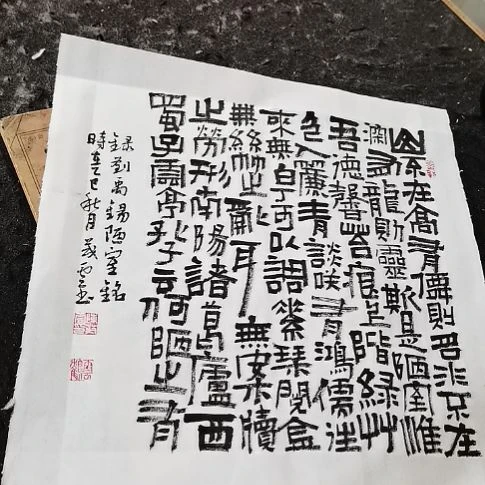 山不在高有僊則名水不在
深有龍則靈斯是陋室惟
吾德馨苔痕上階綠艸
色入簾青談咲有鴻儒往
來無白丁可以調素琴閱金
無絲竹之亂耳無案牘
之勞形南陽諸葛廬西
蜀子雲亭孔子云何陋之有
录劉禹錫陋室銘
時在乙巳秋月